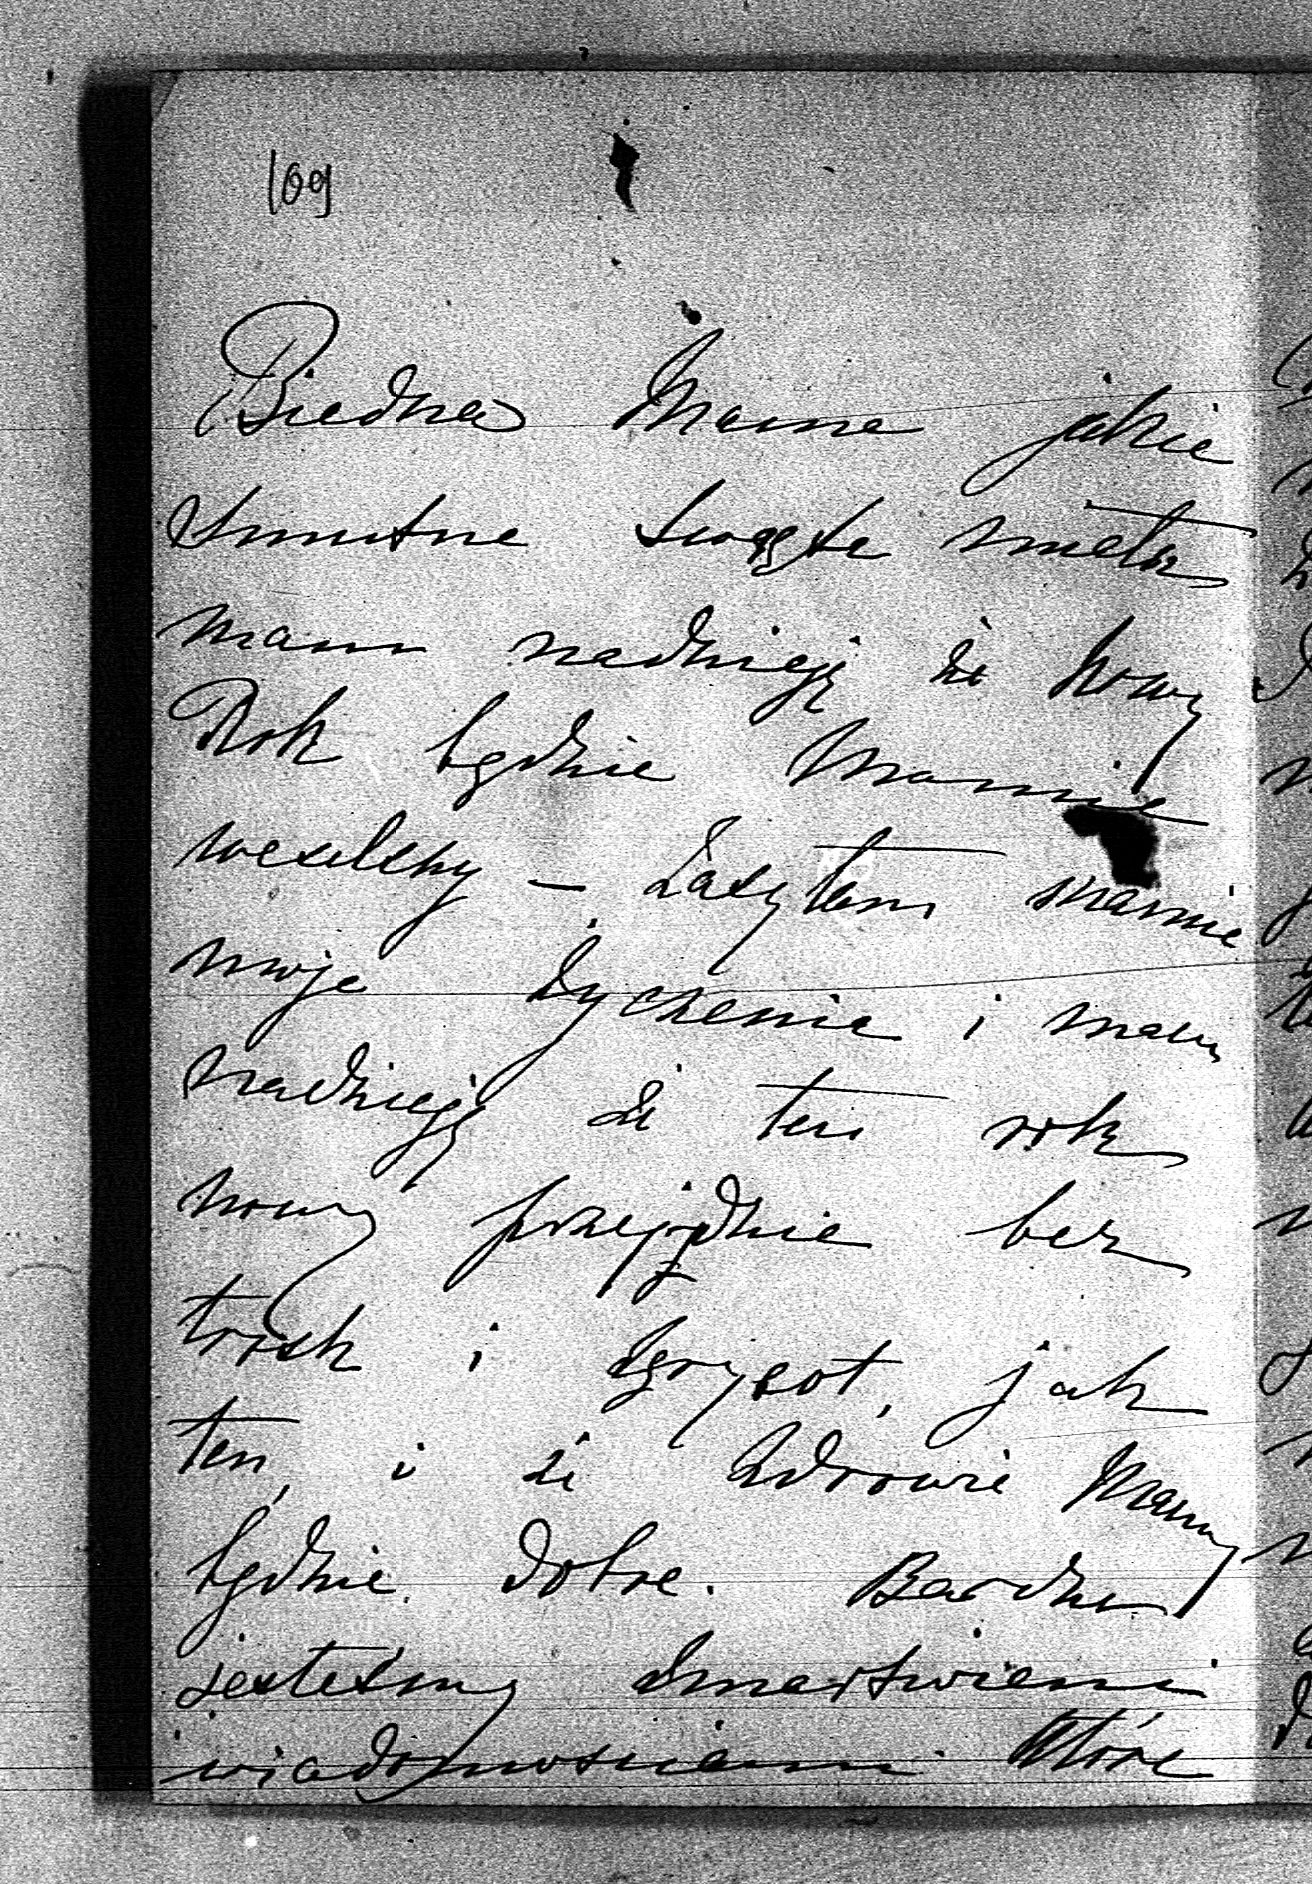 109
Biedna Mama jakie
smutne święta miała
mam nadzieję że nowy
Rok będzie Mamie
weselszy – Zasyłam mamie
moje życzenie i mam
nadzieję że ten rok
nowy przejdzie bez
trosk i zgryzot, jak
ten, i że zdrowie Mamy
będzie dobre. Bardzo
jesteśmy zmartwieni
wiadomościami które